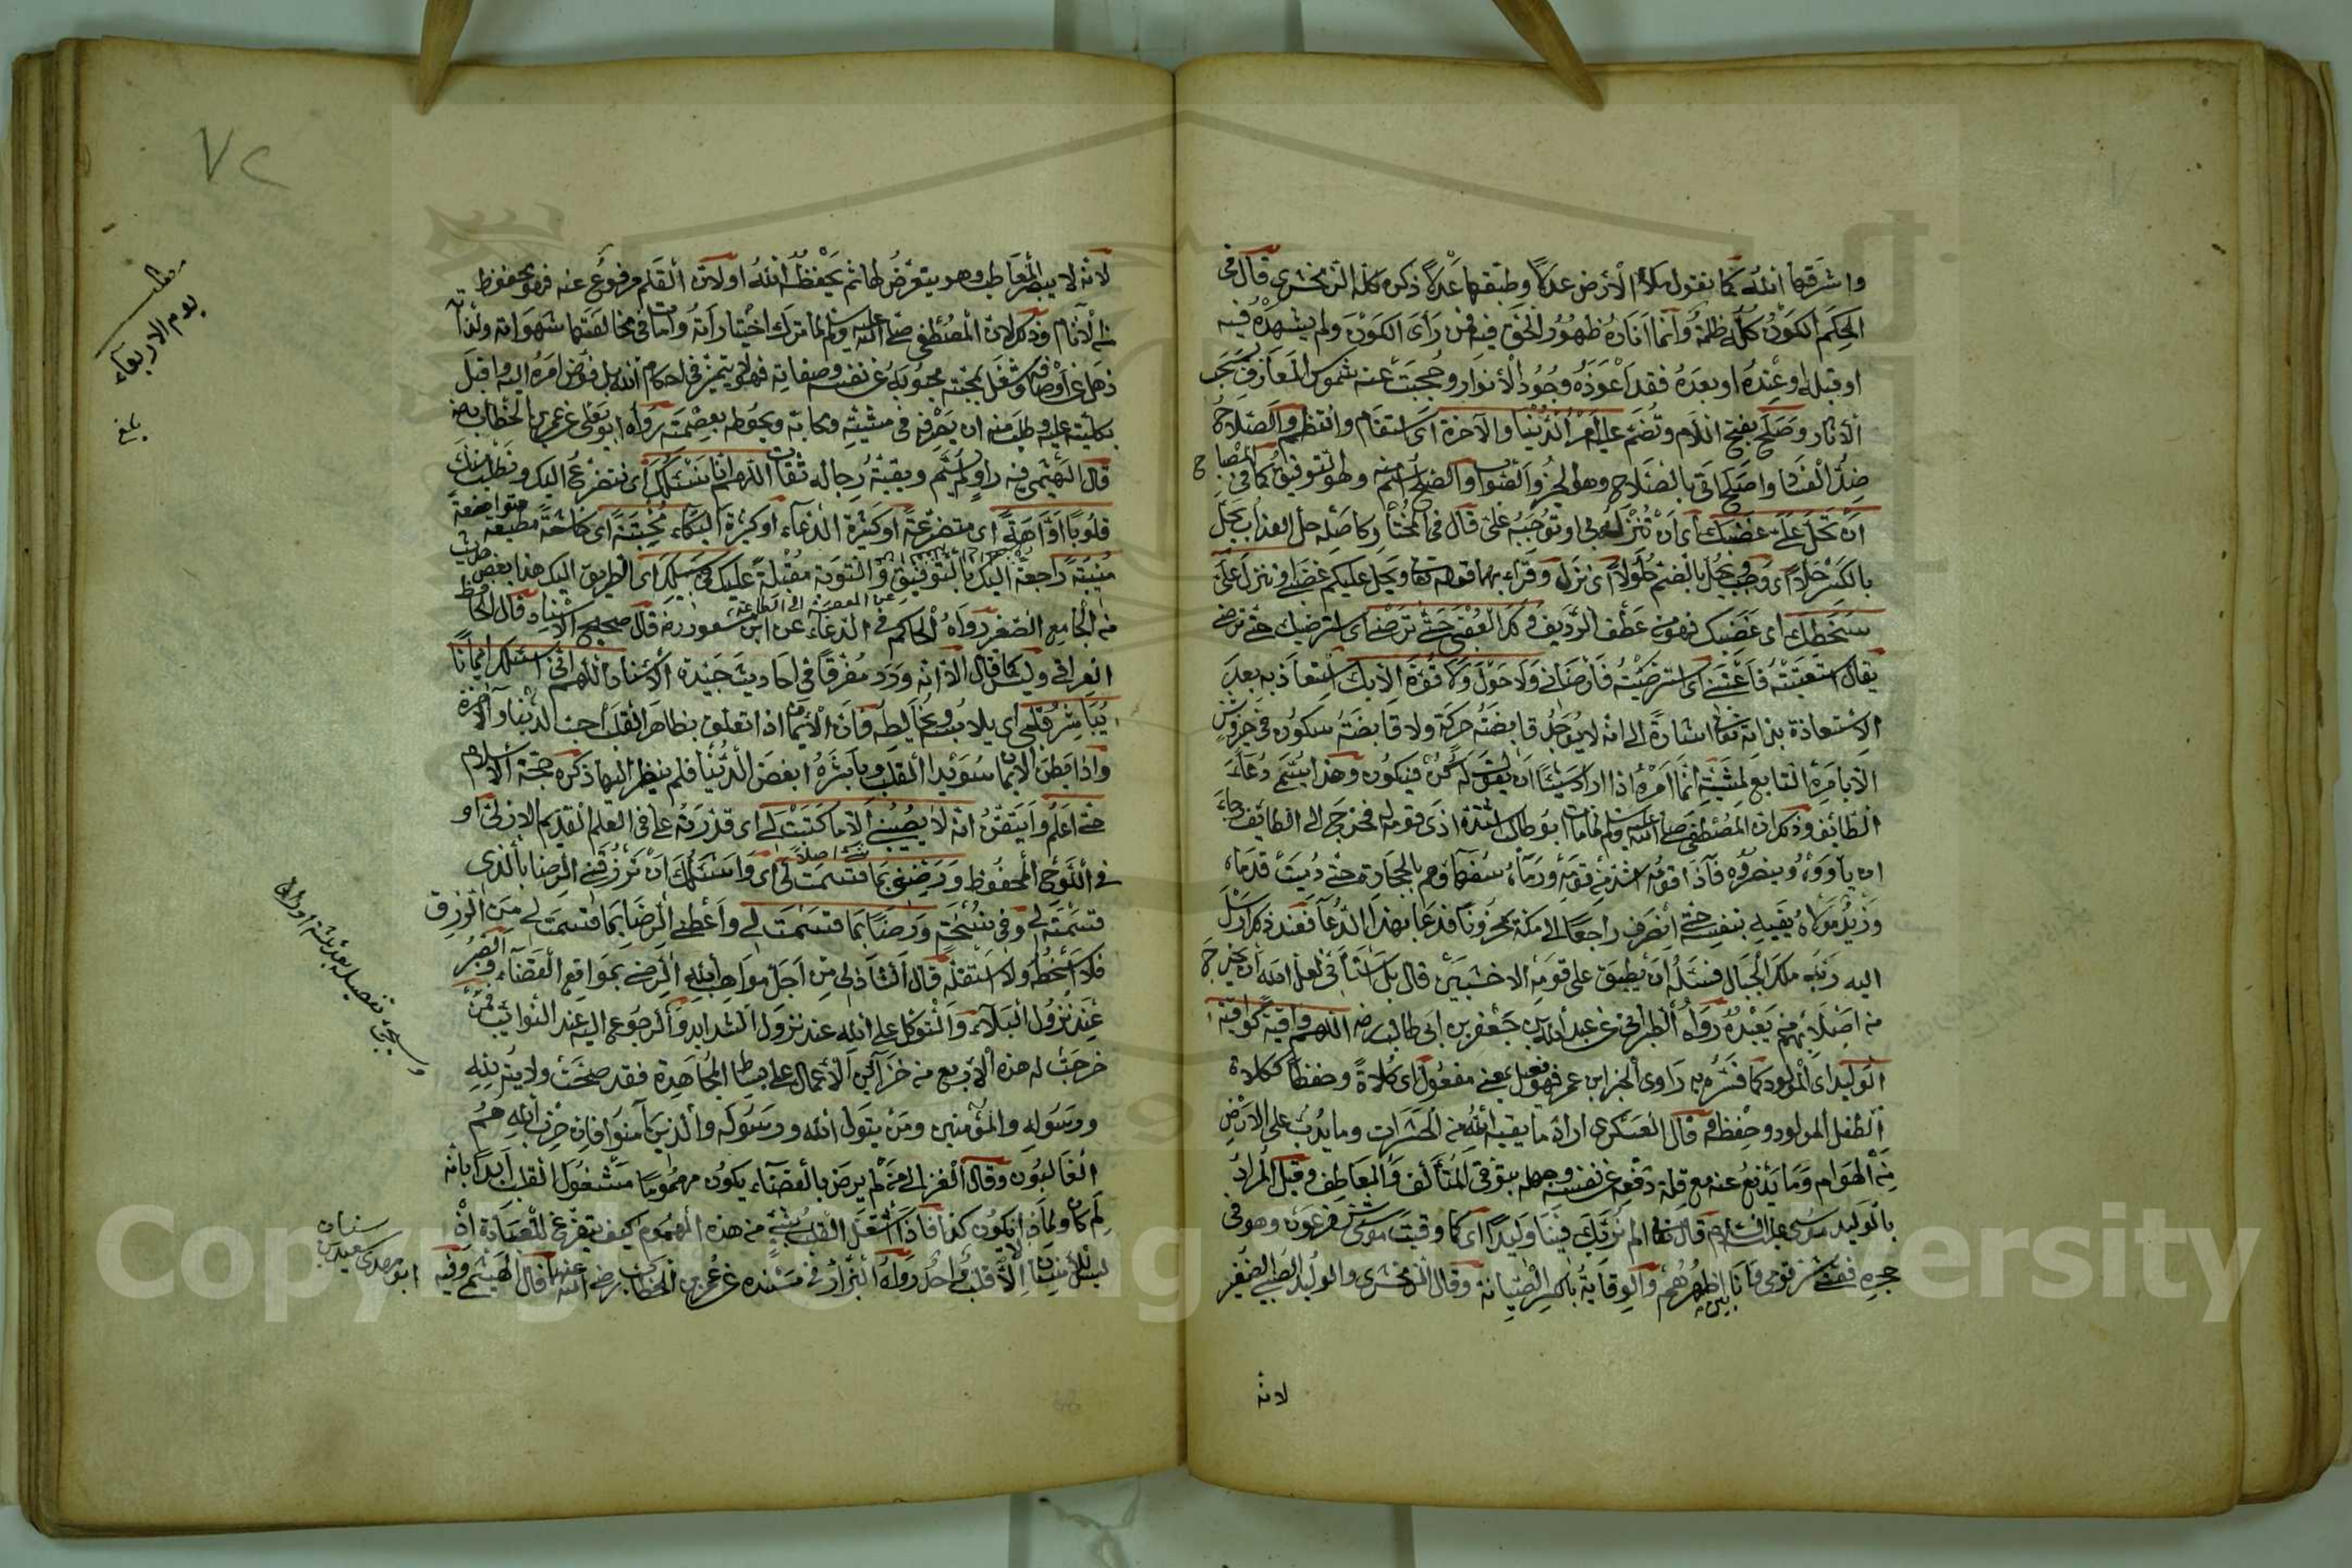 واشرقها الله كما يقول ملأ الارض عدلا وطبقها عدلا ذكره كله الزمخشري قال في
الحكم الكون كله ظلمة وانما اناره ظهور الحق فيه فمن رأى الكون ولم يشهده فيه
او قبله او عنده او بعده فقد اعوزه وجود الانوار وحجبت عنه شموس المعارف بسحب
الآثار وصلح بفتح اللام وتضم عليه امر الدنيا والآخرة اى استقام وانتظم والصلاح
ضد الفساد واصلح اتى بالصلاح وهو الخير والصواب والصلح اسم منه وهو التوفيق كما في المصباح
ان تحل علي غضبك اى ان تنزله بي او توجبه علي قال في المختار وكاصله حل العذاب يحل
بالكسر حلالا اى وجب ويحل بالضم حلولا اى نزل وقرئ بهما قوله تعالى ويحل عليكم غضبي او تنزل علي
سخطك اى غضبك فهو من عطف الرديف ولك العتبى حتى ترضى اى استرضيك حتى ترضى
يقال استعتبته فاعتبني اى استرضيته فارضاني ولا حول ولا قوة الا بك استعاذ به بعد
الاستعاذة بذاته تعالى اشارة الى انه لا يوجد قابضة حركة ولا قابضة سكون في خير وشر
الا بامره التابع لمشيئته انما امره اذا اراد شيئا ان يقول له كن فيكون وهذا يسمى دعاء
الطائف وذلك ان المصطفى صلى الله عليه وسلم لما مات ابو طالب اشتد اذى قومه له فخرج الى الطائف رجاء
ان ياووه وينصروه فآذاه قومه اشد من قومه ورماه سفهاؤهم بالحجارة حتى دميت قدماه
وزيد مولاه يقيه بنفسه حتى انصرف راجعا الى مكة محزونا فدعا بهذا الدعاء فعند ذلك ارسل
اليه ربه ملك الجبال فسأله ان يطبق على قومه الاخشبين قال بل استأني لعل الله ان يخرج
من اصلابهم من يعبده رواه الطبراني عن عبد الله بن جعفر بن ابى طالب رضه اللهم واقية كواقية
الوليد اى المولود كما فسره به راوى الخبر ابن عمر فهو فعيل بمعنى مفعول اى كلاءة وحفظا ككلاءة
الطفل المولود وحفظه قال العسكرى اراد ما يقيه الله من الحشرات وما يدب على الارض
من الهوام وما يدفع عنه مع قلة دفعه عن نفسه وجهله بتوقى المتالف والمعاطف وقيل المراد
بالوليد موسى عليه السلام قال تعالى الم نربك فينا وليدا اى كما وقيت موسى شر فرعون وهو في
حجره فقني شر قومى وانا بين اظهرهم والوقاية بالكسر الصيانة وقال الزمخشرى والوليد الصبي الصغير
لانه
لانه لا يبصر المعاطب وهو يتعرض لها ثم يحفظه الله او لان القلم مرفوع عنه فهو محفوظ
من الآثام وذلك لان المصطفى صلى الله عليه وسلم لما ترك اختياراته وامات في مخالفتها شهواته ولذاته
ذهل عن اوصافه وشغل بمحبة محبوبه عن نفسه وصفاته فهو لم يتميز في احكام الله بل فوض امره اليه واقبل
بكليته عليه وطلب منه ان يصرفه في مشيئته ومحابه ويحوطه بعصمته رواه ابو يعلى عن عمر بن الخطاب رضه
قال الهيثمى فيه راو لم يسم وبقية رجاله ثقات اللهم انا نسئلك اى نتضرع اليك ونطلب منك
قلوبا اواهة اى متضرعة او كثيرة الدعاء او كثيرة البكاء مخبتة اى خاشعة مطيعة متواضعة
منيبة راجعة اليك بالتوفيق والتوبة مقبلة عليك في سبيلك اى الطريق اليك هذا بعض حديث
من الجامع الصغير رواه الحاكم في الدعاء عن ابن مسعود رضه قال صحيح الاسناد قال الحافظ
العراقى وليس كما قال الا انه ورد مفرقا في احاديث جيدة الاسناد اللهم اني اسئلك ايمانا
يباشر قلبي اى يلابسه ويخالطه فان الايمان اذا تعلق بظاهر القلب احب الدنيا والآخرة
واذا بطن الايمان سويداء القلب وباشره ابغض الدنيا فلم ينظر اليها ذكره حجة الاسلام
حتى اعلم وايقن انه لا يصيبني الا ما كتبت لي اى قدرته علي في العلم القديم الازلى او
في اللوح المحفوظ ورضني بما قسمت لي اى واسئلك ان ترزقني الرضا بالذى
قسمته لي وفي نسخة ورضا بما قسمت لي واعطني الرضا بما قسمت لي من الرزق
فلا اسخطه ولا استقله قال الشاذلى من اجل مواهب الله الرضى بمواقع القضاء والصبر
عند نزول البلاء والتوكل على الله عند نزول الشدايد والرجوع اليه عند النوائب فمن
خرجت له هذه الاربع من خزائن الاعمال على بساط المجاهدة فقد صحت ولايته لله
ورسوله والمؤمنين ومن يتول الله ورسوله والذين آمنوا فان حزب الله هم
الغالبون وقال الغزالى من لم يرض بالقضاء يكون مهموما مشغول القلب ابدا بانه
لم كان ولماذا يكون كذا فاذا اشتغل القلب بشئ من هذه الهموم كيف يتفرغ للعبادة اذ
ليس للانسان الا قلب واحد رواه البزار في مسنده عن عمر بن الخطاب رضى الله عنهما قال الهيثمى وفيه
ابو مهدى سعيد بن
سنان
مطلب
يوم الاربعاء
بلغ
٧٢